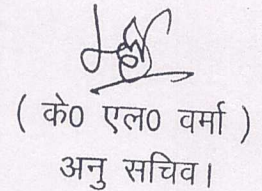 ( के0 एल0 वर्मा )
अनु सचिव।